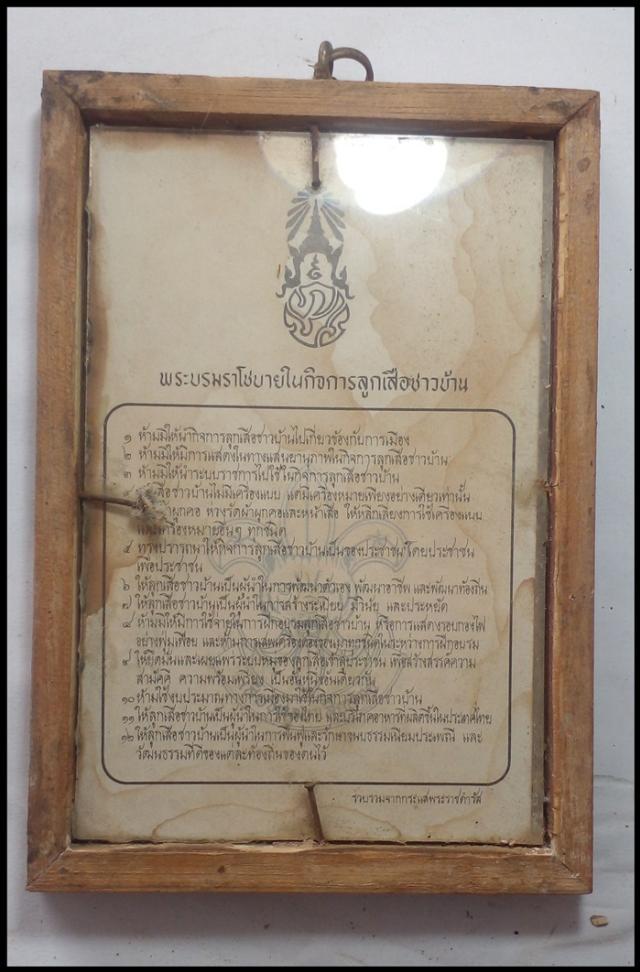 พระบรมราโชบายในกิจการลูกเสือชาวบ้าน
๑ ห้ามมิให้นำกิจการลูกเสือชาวบ้านไปเกี่ยวข้องกับการเมือง
๒ ห้ามมิให้มีการแสดงในทางแสนยานุภาพในกิจการลูกเสือชาวบ้าน
๓ ห้ามมิให้นำระบบราชการไปใช้ในกิจการลูกเสือชาวบ้าน
เสือชาวบ้านไม่มีเครื่องแบบ แต่มีเครื่องหมายเพียงอย่างเดียวเท่านั้น
ผูกคอ ห่วงรัดผ้าผูกคอและหน้าเสือ ให้หลีกเลี่ยงการใช้เครื่องแบบ
และเครื่องหมายอื่นๆ ทุกชนิด
๕ ทรงปรารถนาให้กิจการลูกเสือชาวบ้านเป็นของประชาชน โดยประชาชน
เพื่อประชาชน
๖ ให้ลูกเสือชาวบ้านเป็นผู้นำในการพัฒนาตัวเอง พัฒนาอาชีพ และพัฒนาท้องถิ่น
๗ ให้ลูกเสือชาวบ้านเป็นผู้นำในการสร้างระเบียบ มีวินัย และประหยัด
๘ ห้ามมิให้มีการใช้จ่ายในการฝึกอบรมลูกเสือชาวบ้าน หรือการแสดงรอบกองไฟ
อย่างฟุ่มเฟือย และห้ามการเสพเครื่องดองของเมาทุกชนิดในระหว่างการฝึกอบรม
๙ ให้ยึดมั่นและเผยแพร่ระบบหมู่ของลูกเสือเข้าสู่ประชาชน เพื่อสร้างสรรค์ความ
สามัคคี ความพร้อมเพรียง เป็นอันหนึ่งอันเดียวกัน
๑๐ ห้ามใช้งบประมาณทางการเมืองมาใช้ในกิจการลูกเสือชาวบ้าน
๑๑ ให้ลูกเสือชาวบ้านเป็นผู้นำในการใช้ของไทย และบริโภคอาหารที่ผลิตขึ้นในประเทศไทย
๑๒ ให้ลูกเสือชาวบ้านเป็นผู้นำในการฟื้นฟูและรักษาขนบธรรมเนียมประเพณี และ
วัฒนธรรมที่ดีของแต่ละท้องถิ่นของตนไว้
รวบรวมจากกระแสพระราชดำรัส